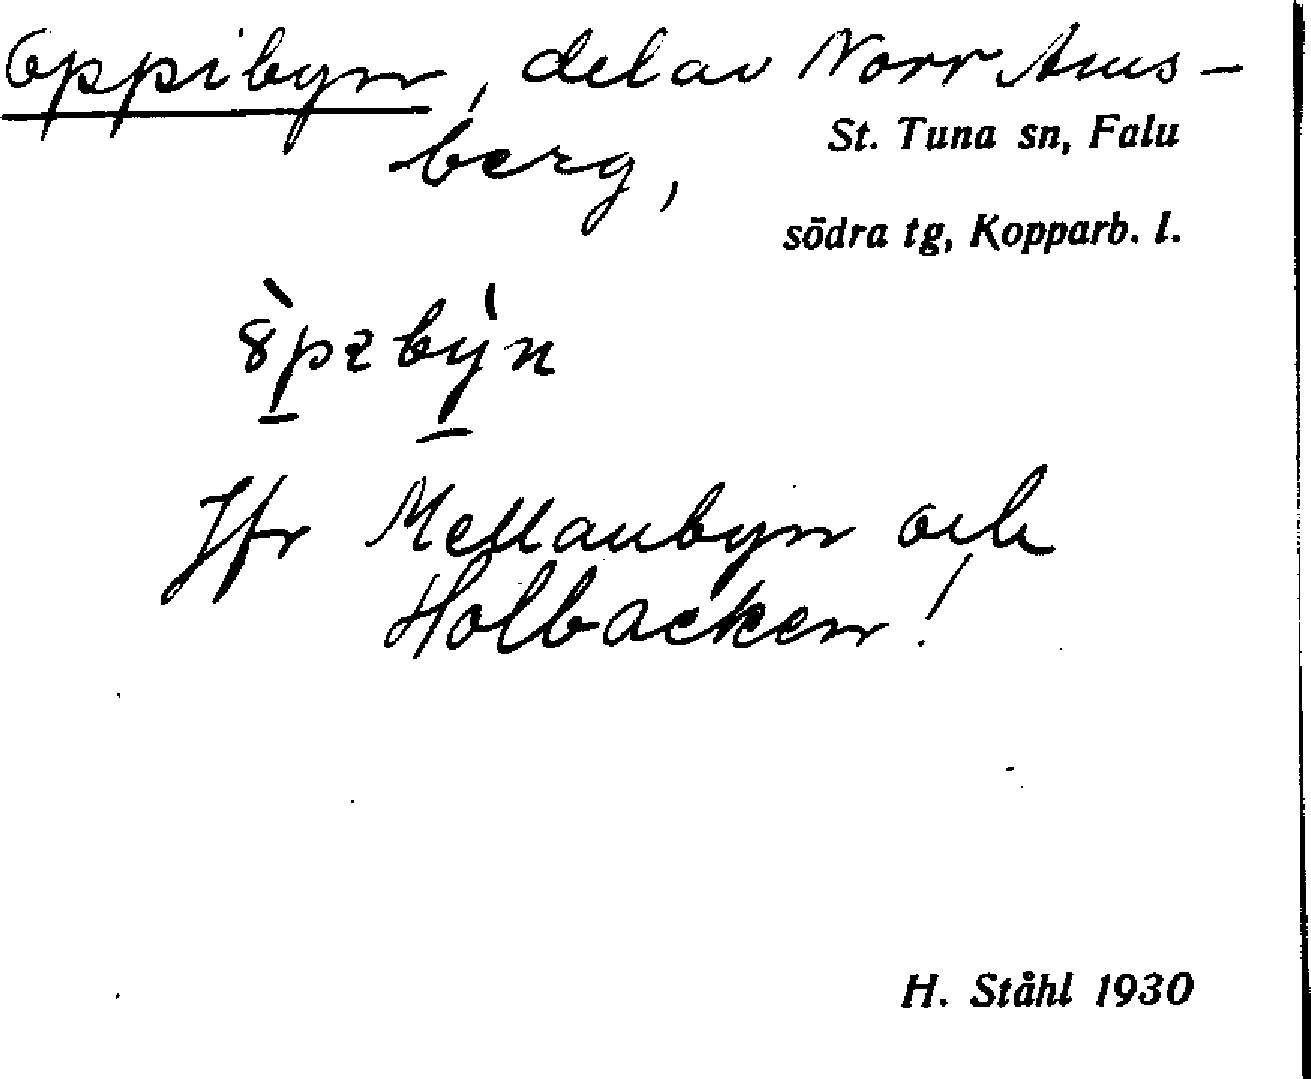 Oppibyn, del av Norr Ams-
berg,
St. Tuna sn, Falu
södra tg, Kopparb. l.
Jfr Mellanbyn och
Holbacken!
H. Ståhl 1930